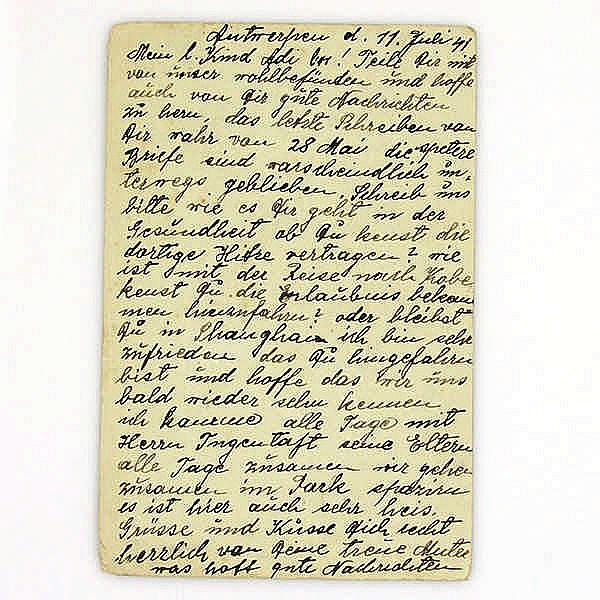 Antwerpen d. 11. Juli 41
Mein l. Kind Adi !  Teile Dir mit
von unser wohlbefinden und hoffe
auch von Dir gute Nachrichten
zu hern, das letzte Schreiben von
Dir wahr von 28 Mai die spetere
Briefe sind warscheindlich un-
terwegs geblieben. Schreib uns
bitte wie es Dir geht in der
Gesundheit ob Du kenst die
dortige Hitze vertragen? wie
ist mit der Reise nach Kobe,
kenst Du die Erlaubnis bekom
men hinzufahrn? oder bleibst
Du in Shanghai ich bin sehr
zufrieden das Du hingefahrn
bist und hoffe das wir uns
bald wieder sehn kennen
ich komme alle Tage mit
Herrn seine Eltern
alle Tage zusamen wir gehen
zusamen im Park spazirn
es ist hier auch sehr heis.
Grüsse und Küsse Dich recht
herzlich von Deine treue Mutter
was hoft gute Nachrichten